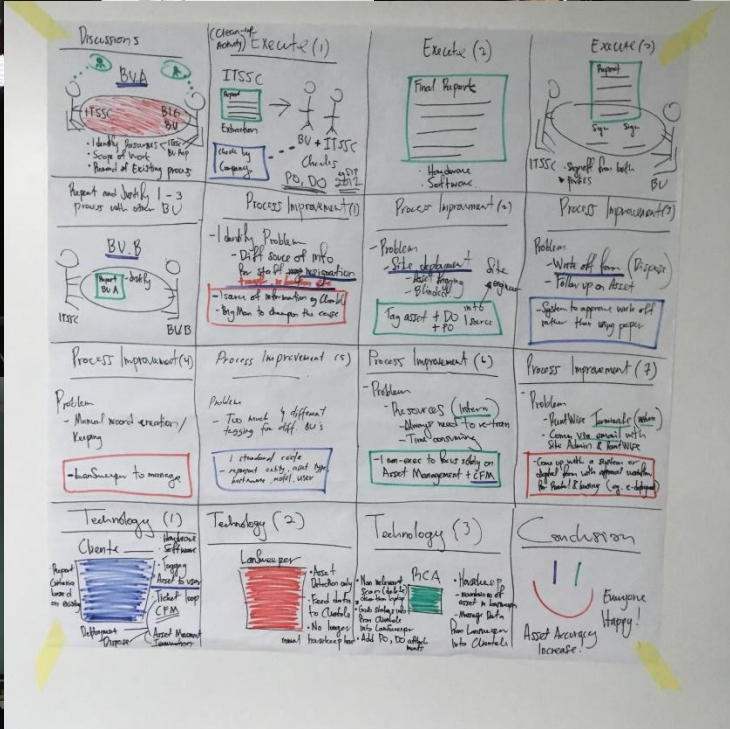 Discussions
BU.A
ITSSC
BIG
BU
• Identify Resources
• Scope of Work
• Record of Existing process
(Clean-up
Activity) Execute (1)
ITSSC
Report
Extraction
BU + ITSSC
Checks
Check by
Company
PO, DO
Execute (2)
Final Reports
• Hardware
• Software
Execute (3)
Report
Sign
Sign
ITSSC
• Signoff from both
Parties
BU
Repeat and Justify 1-3
process with other BU
BU.B
Report
BU A
Justify
ITSSC
BU B
Process Improvement (1)
- Identify Problem
- Diff source of info
for staff resignation
- 1 source of information @ Clientele
- Big Man to champion the cause
Process Improvment (2)
- Problem
- Site deployment
- Asset tagging
Site
engineer
Tag asset + DO
+ PO
into
1 source
Process Improvement (3)
Problem
- Write off form (Dispose)
- Follow up on Asset
- System to approve write off
rather than using paper
Process Improvement (4)
Problem
- Manual record creation/
Keeping
- LanSweeper to manage
Process Improvement (5)
Problem
- Too much & different
tagging for diff. BU's
1 standard code
- represent entity, asset type,
hostname, model, user
Process Improvement (6)
- Problem
- Resources (Intern)
- Always need to re-train
- Time consuming
- 1 non-exec to focus solely on
Asset Management + CFM
Process Improvement (7)
Problem
- PointWise Terminals
- Comm via email with
Site Admin & PointWise
- Come up with a system or
digital form with approval workflow
for Rental & leasing
Technology (1)
Clientele
• Hardware
• Software
• Tagging
Asset to user
• Report
Criteria
based
on existing
Ticket loop
CFM
Deployment
Dispose
Asset Movement
Technology (2)
LanSweeper
• Asset
Detection only
• Feed data
to Clientele
• No longer
manual housekeeping
Technology (3)
RCA
• Non relevant
scan
from Clientele
into LanSweeper
• Add PO, DO
• Housekeep
- maintenance of
asset in LanSweeper
- Massage Data
from LanSweeper
into Clientele
Conclusion
Everyone
Happy!
Asset Accuracy
Increase!